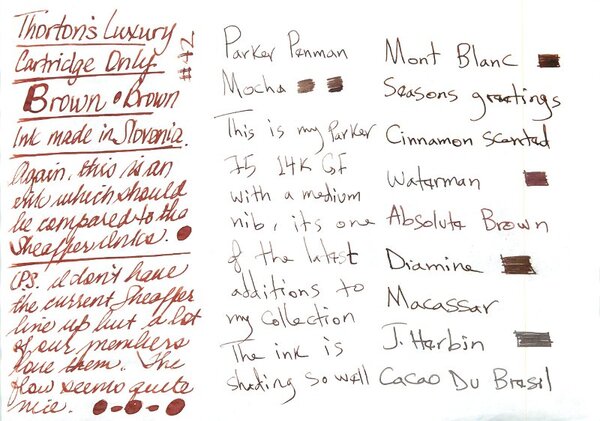 Thorton's Luxury
Cartridge Only
#42
Brown • Brown
Ink made in Slovenia.
Again, this is an
ink which should
be compared to the
Sheaffer inks.
(P.S. I don't have
the current Sheaffer
line up but a lot
of our members
have them. The
flow seems quite
nice.
Parker Penman
Mocha
This is my Parker
75 14K GF
with a medium
nib, its one
of the latest
additions to
my collection
The ink is
shading so well
Mont Blanc
Seasons greetings
Cinnamon scented
Waterman
Absolute Brown
Diamine
Macassar
J. Herbin
Cacao Du Bresil